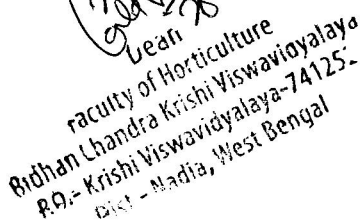 Dean
Faculty of Horticulture
Bidhan Chandra Krishi Viswavidyalaya
P.O.- Krishi Viswavidyalaya-741252
Dist - Nadia, West Bengal